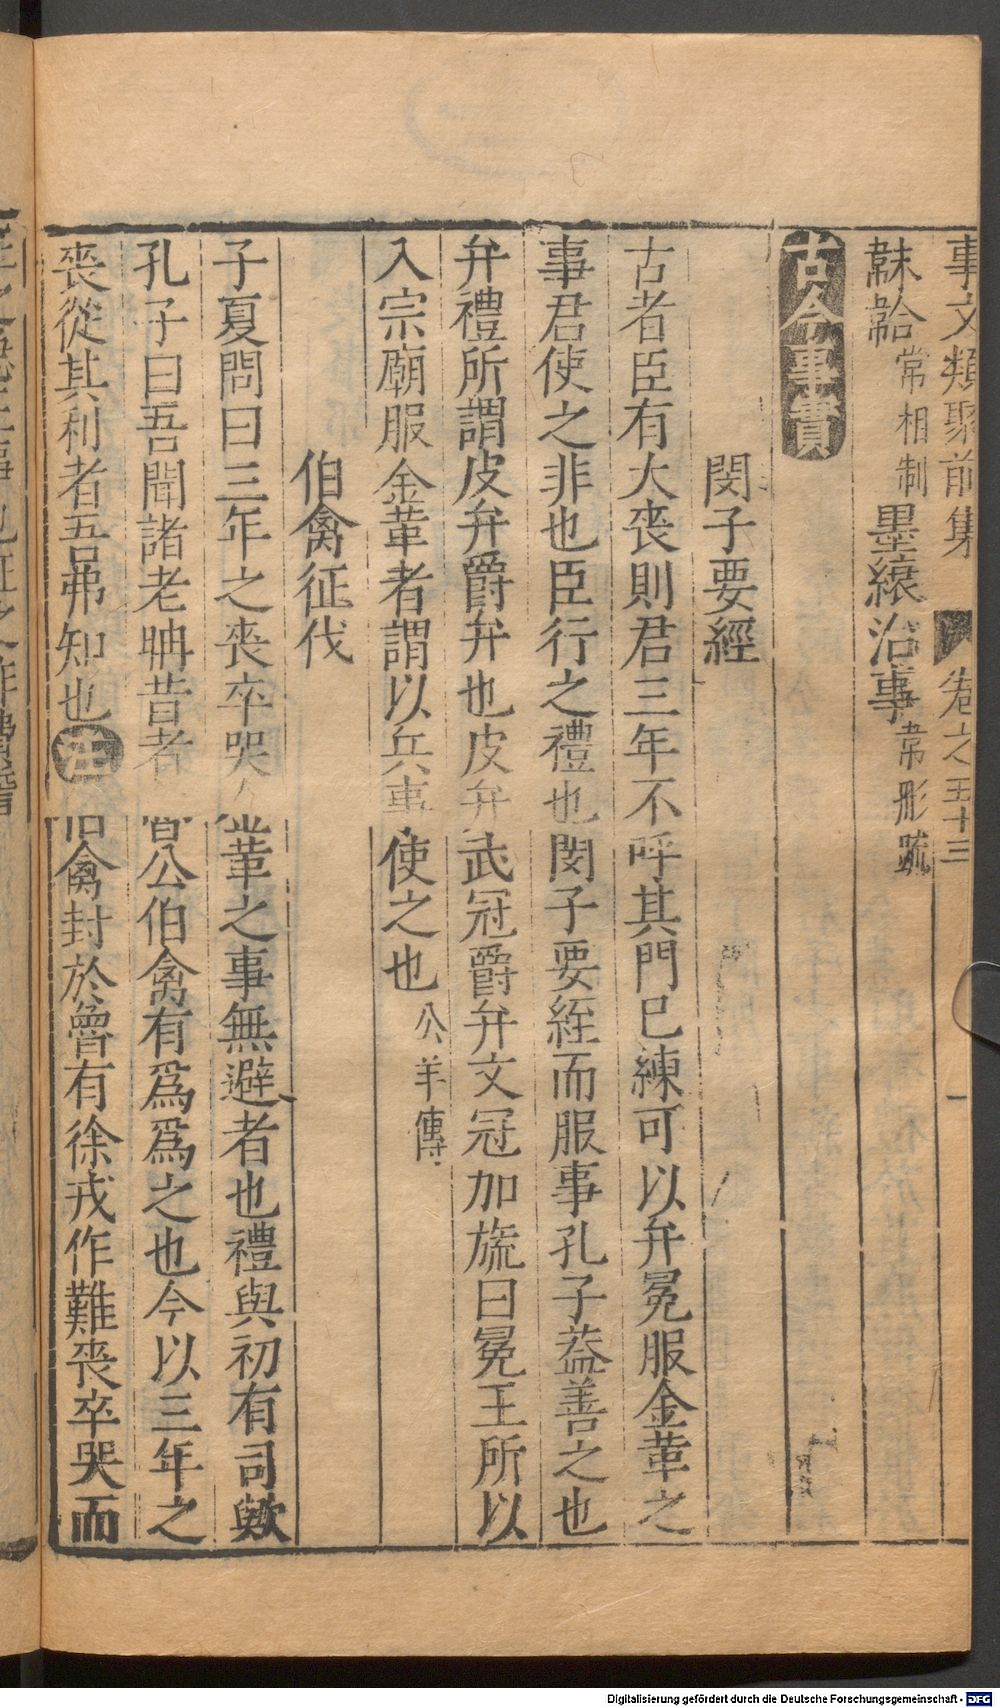 事文類聚前集 卷之五十三 一
韎韐常相制墨縗治事常彤䟽
古今事實
閔子要經
古者臣有大喪則君三年不呼其門已練可以弁冕服金革之
事君使之非也臣行之禮也閔子要絰而服事孔子蓋善之也
弁禮所謂皮弁爵弁也皮弁武冠爵弁文冠加旒曰冕王所以
入宗廟服金革者謂以兵事使之也公羊傳
伯禽征伐
子夏問曰三年之喪卒哭金革之事無避者也禮與初有司歟
孔子曰吾聞諸老聃昔者魯公伯禽有爲爲之也今以三年之
喪從其利者吾弗知也注伯禽封於魯有徐戎作難喪卒哭而
Digitalisierung gefördert durch die Deutsche Forschungsgemeinschaft - DFG